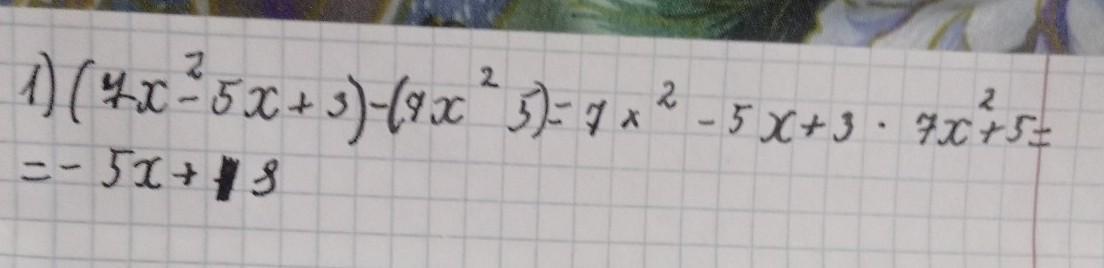 1) (7x² - 5x + 3) - (7x² 5) = 7x² - 5x + 3 · 7x² + 5 =
= - 5x + 8